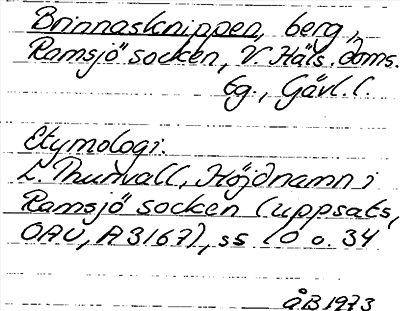 Brinnasknippen, berg,
Ramsjö socken, V. Häls. doms.
tg., Gävl. l.
Etymologi.
L. Thunvall, Höjdnamn i
Ramsjö socken (uppsats,
OAU, A 3167), ss. 10 o. 34
åB 1973